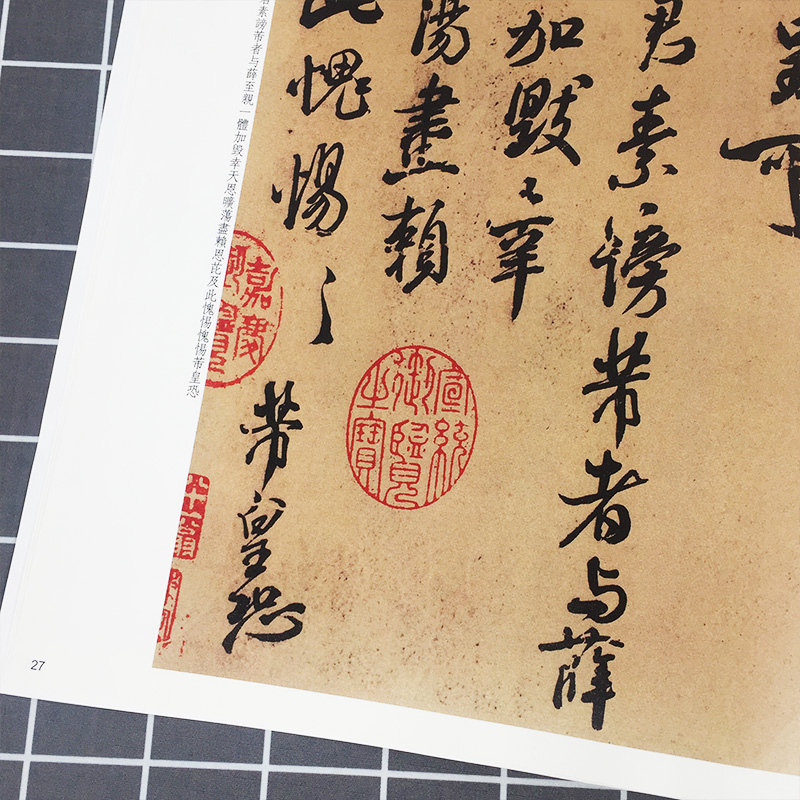 君素謗芾者与薛
加毀幸
蕩盡賴
此愧惕〻
芾皇恐
宣統御覽之寶
嘉慶
素謗芾者与薛至親一體加毀幸天恩曠蕩盡賴恩芘及此愧惕愧惕芾皇恐
27